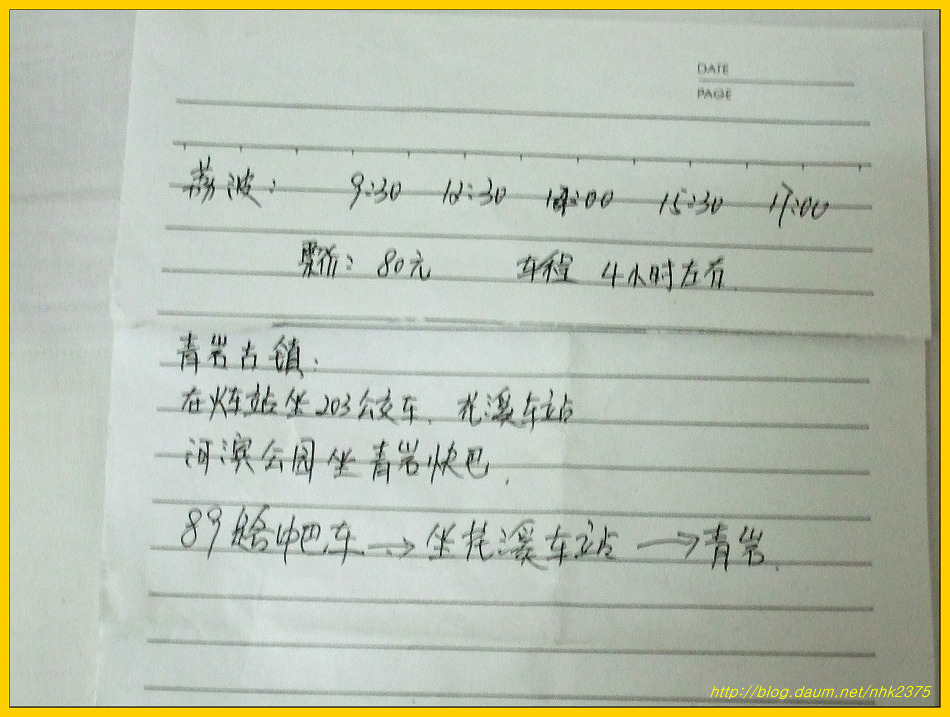 DATE
PAGE
荔波: 9:30 12:30 14:00 15:30 17:00
票价: 80元 车程 4小时左右
青岩古镇:
在火车站坐203公交车. 花溪车站
河滨公园坐青岩快巴.
89 中巴车→坐花溪车站→青岩.
http://blog.daum.net/nhk2375